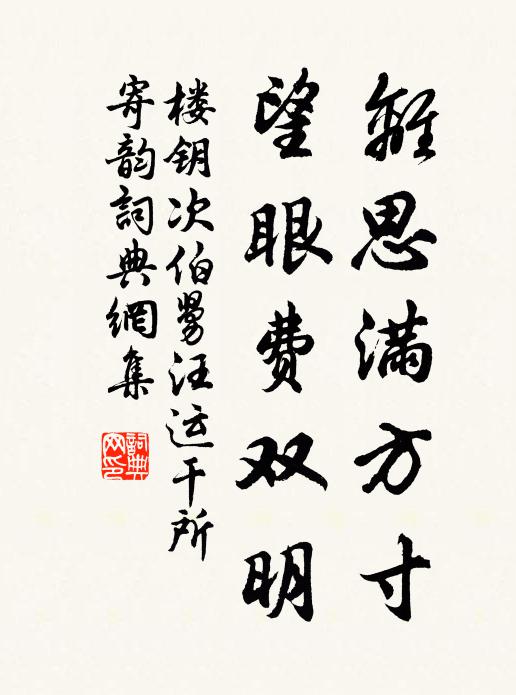 離思满方寸
望眼费双明
楼钥次伯舅汪运干所
寄韵詞典網集
詞典网印